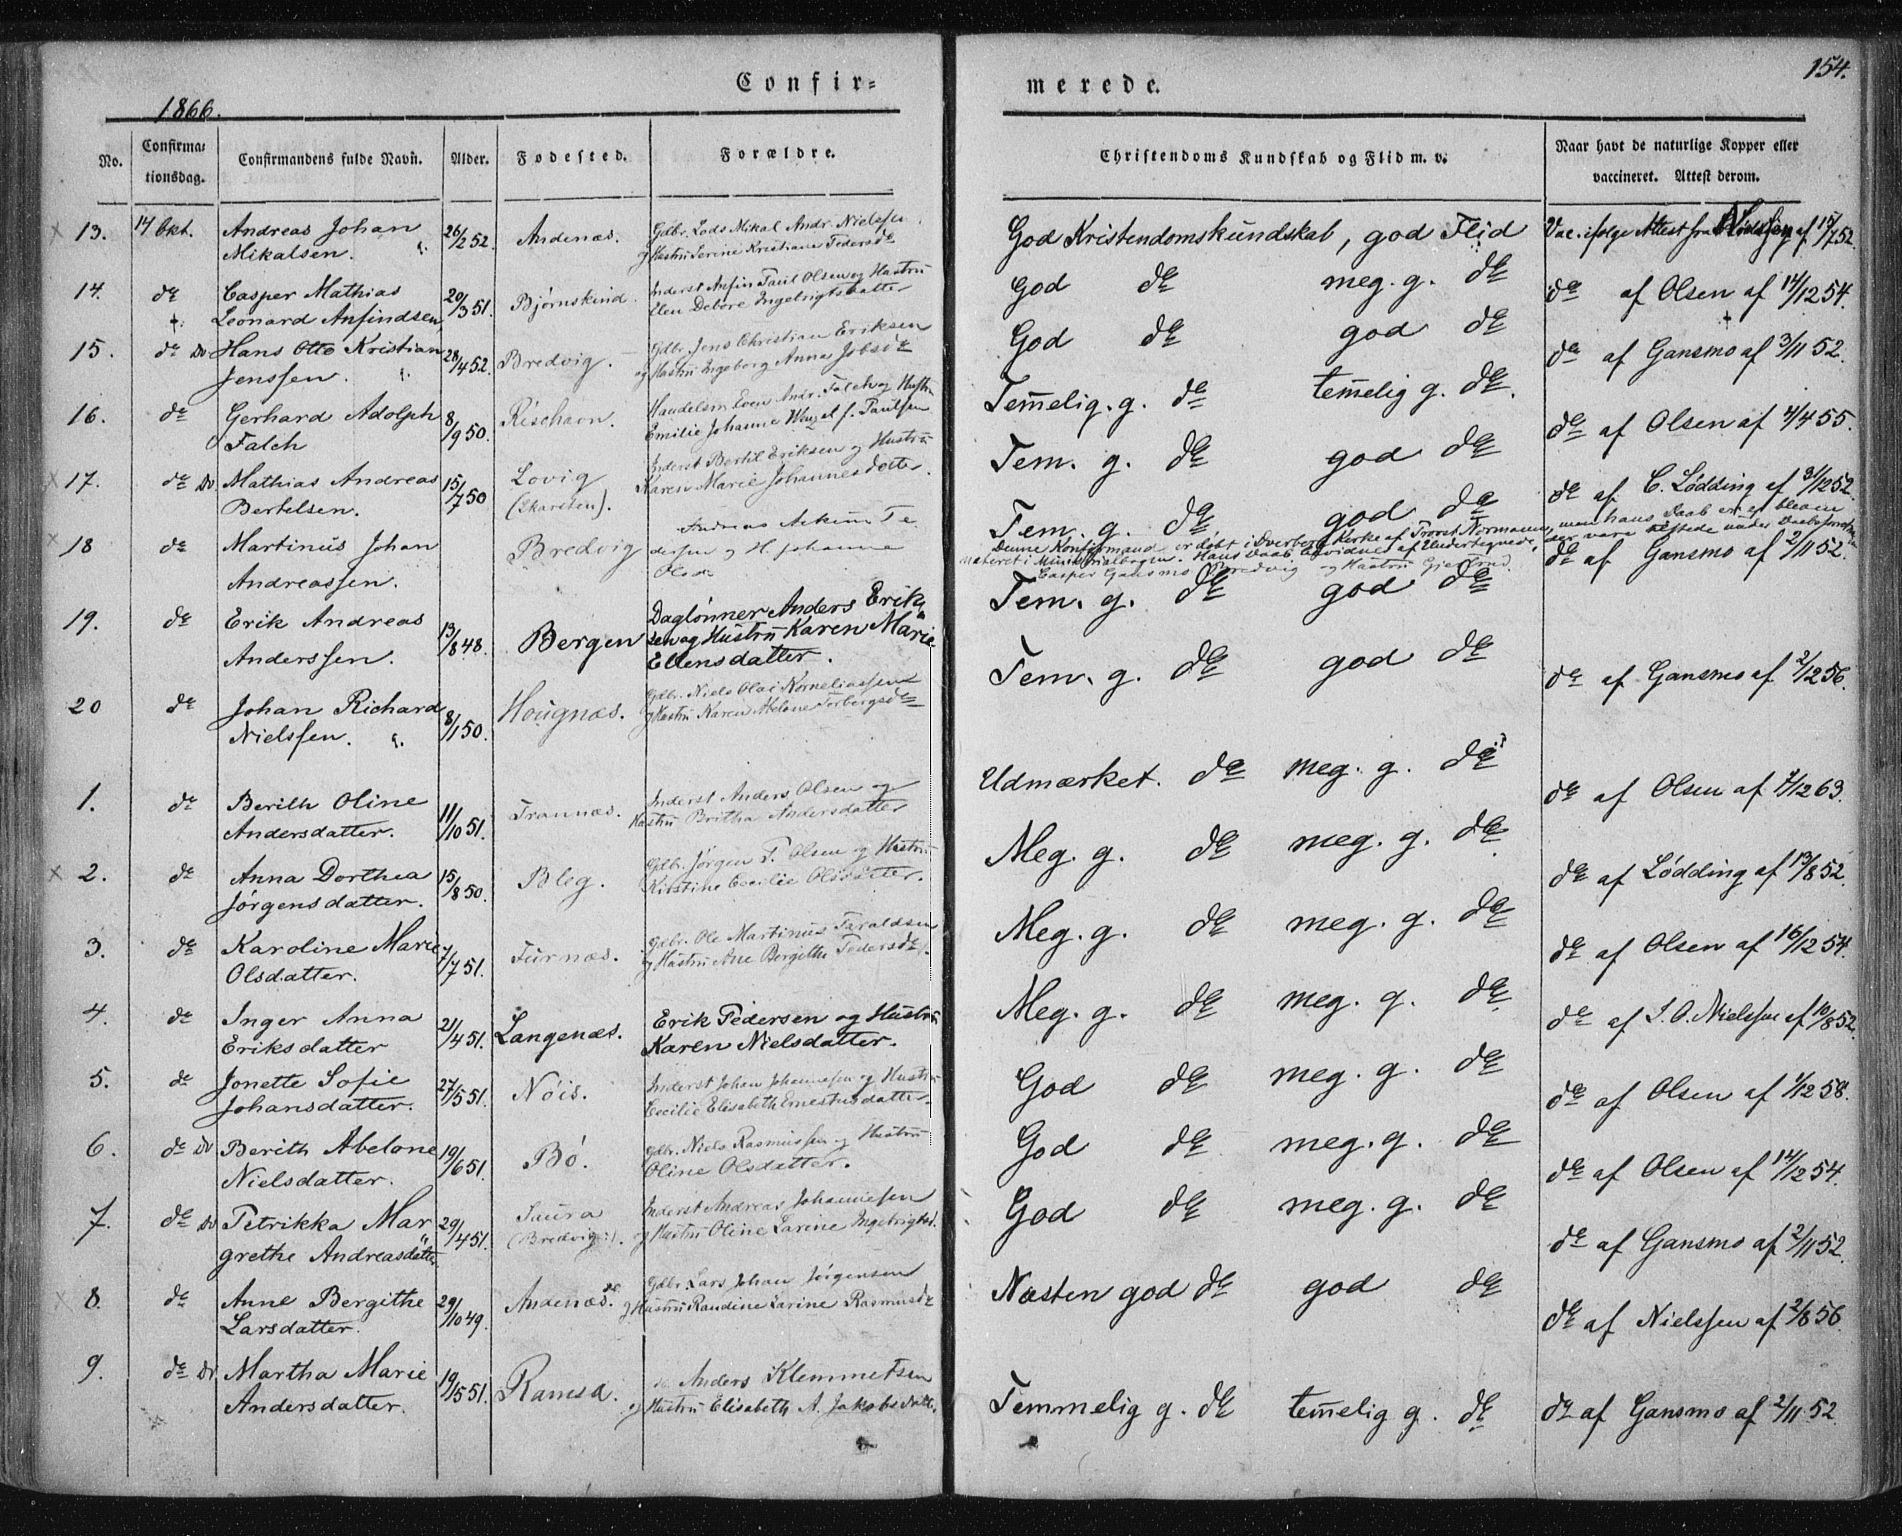 154.
Confir= merede.
1866.
No. Confirma= tionsdag. Confirmandens fulde Navn. Alder. Fødested. Forældre. Christendoms Kundskab og Flid m. v. Naar havt de naturlige Kopper eller vaccineret. Attest derom.
13. 14 Okt. Andreas Johan 26/2 52. Andenæs. Gdbr. Lods Mikal Andr. Nielssen God Kristendomskundskab, god Flid Vac. ifølge Attest fra af 15/7 52.
Mikalsen. og Hustru Serine Kristiane Pedersdr
14. do Casper Mathias 20/3 51. Bjørnskind. Inderst Anfin Paul Olsen og Hustru God do meg. g. do do af Olsen af 14/12 54.
Leonard Anfindsen Elen Debore Ingebrigtsdatter
15. do Dv Hans Otto Kristian 28/4 52. Bredvig. Gdbr. Jens Christian Eriksen God do god do do af Gansmo af 3/11 52.
Jenssen. og Hustru Ingeborg Anna Jobsdr
16. do Gerhard Adolph 8/9 50. Risehavn. Handelsm. Even Andr. Falch og Hustru Temmelig. g. do temmelig g. do. do af Olsen af 4/4 55.
Falch Emilie Johanne Wenzel f. Paulsen
17. do Dv Mathias Andreas 15/7 50 Lovig Inderst Bertil Eriksen og Hustru Tem. g. do god do do af C. Lødding af 3/12 52.
Bertelsen. (Skarsten). Karen Marie Johannesdatter.
18 do Martinus Johan Bredvig Andreas Pe Tem. g. do god do do af Gansmo af 2/11 52.
Andreassen. dersen og H. Johanne
Olsdr
Denne Konfirmand er døbt i Dverberg Kirke af Provst Normann, men hans Daab er ei bleven
Ministerialbogen. Hans Daab bevidnes af Undertegnede, der vare tilstede under Daabsforret
Casper Gansmo Bredvig og Hustru Gjertrud.
19. do Erik Andreas 13/8 48. Bergen Daglønner Anders Erik Tem. g. do god do
Anderssen. sen og Hustru Karen Marie
Ellensdatter.
20 do Johan Richard 8/1 50. Hougnæs. Gdbr. Niels Olai Korneliussen Tem. g. do god do do af Gansmo af 2/12 56.
Nielssen. og Hustru Karen Abelone Torbergsdr
1. do Berith Oline 11/10 51. Trannæs. Inderst Anders Olsen og Udmærket. do meg. g. do do af Olsen af 7/12 63.
Andersdatter. Hustru Britha Andersdatter
2. do Anna Dorthea 15/8 50. Bleg. Gdbr. Jørgen P. Olsen og Hustru Meg. g. do meg. g. do do af Lødding af 13/8 52.
Jørgensdatter. Kirstine Cecilie Olsdatter.
3. do Karoline Marie 7/7 51. Turnæs. Gdbr. Ole Martinus Taraldsen Meg. g. do meg. g. do do af Olsen af 16/12 54.
Olsdatter. og Hustru Ane Bergithe Pedersdr.
4. do Inger Anna 21/4 51. Langenæs. Erik Pedersen og Hustru Meg. g. do meg. g. do do af I. O. Nielssen af 10/8 52.
Eriksdatter Karen Nielsdatter.
5. do Jonette Sofie 27/5 51. Nøis. Inderst Johan Johannesen og Hustru God do meg. g. do do af Olsen af 1/12 58.
Johansdatter. Cecilie Elisabeth Ernestusdatter.
6. do Dv Berith Abelone 19/6 51. Bø. Gdbr. Niels Rasmussen og Hustru God do meg. g. do do af Olsen af 14/12 54.
Nielsdatter. Oline Olsdatter.
7. do Dv Petrikka Mar 29/4 51. Saura Inderst Andreas Johannesen God do meg. g. do do af Gansmo af 2/11 52.
grethe Andreasdatter (Bredvig). og Hustru Oline Larine Ingebrigtsd.
8. do Anne Bergithe 29/10 49. Andenæs. Gdbr. Lars Johan Jørgensen Næsten god do god do do af Nielssen af 2/8 56.
Larsdatter. og Hustru Randine Larine Rasmusdr
9. do Dv Martha Marie 19/5 51. Ramsa. Anders Klemmetsen Temmelig g. do temmelig g. do do af Gansmo af 2/11 52.
Andersdatter. og Hustru Elisabeth A. Jakobsdatter.